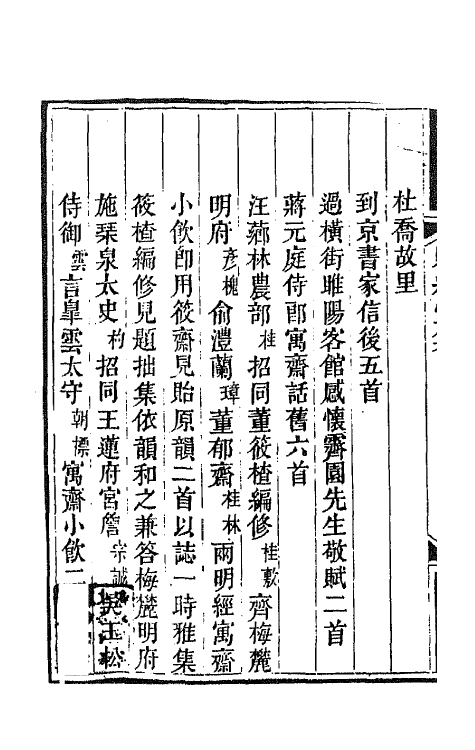 杜喬故里
到京書家信後五首
過橫街睢陽客館感懷霽園先生敬賦二首
蔣元庭侍郎寓齋話舊六首
汪薌林農部桂招同董筱楂編修桂敷齊梅麓
明府彥槐俞澧蘭璋董郁齋桂林兩明經寓齋
小飲卽用筱齋見貽原韻二首以誌一時雅集
筱楂編修見題拙集依韻和之兼答梅麓明府
施琹泉太史杓招同王蓮府宮詹宗誠
侍御雲言臯雲太守朝標寓齋小飲二
吳玉松